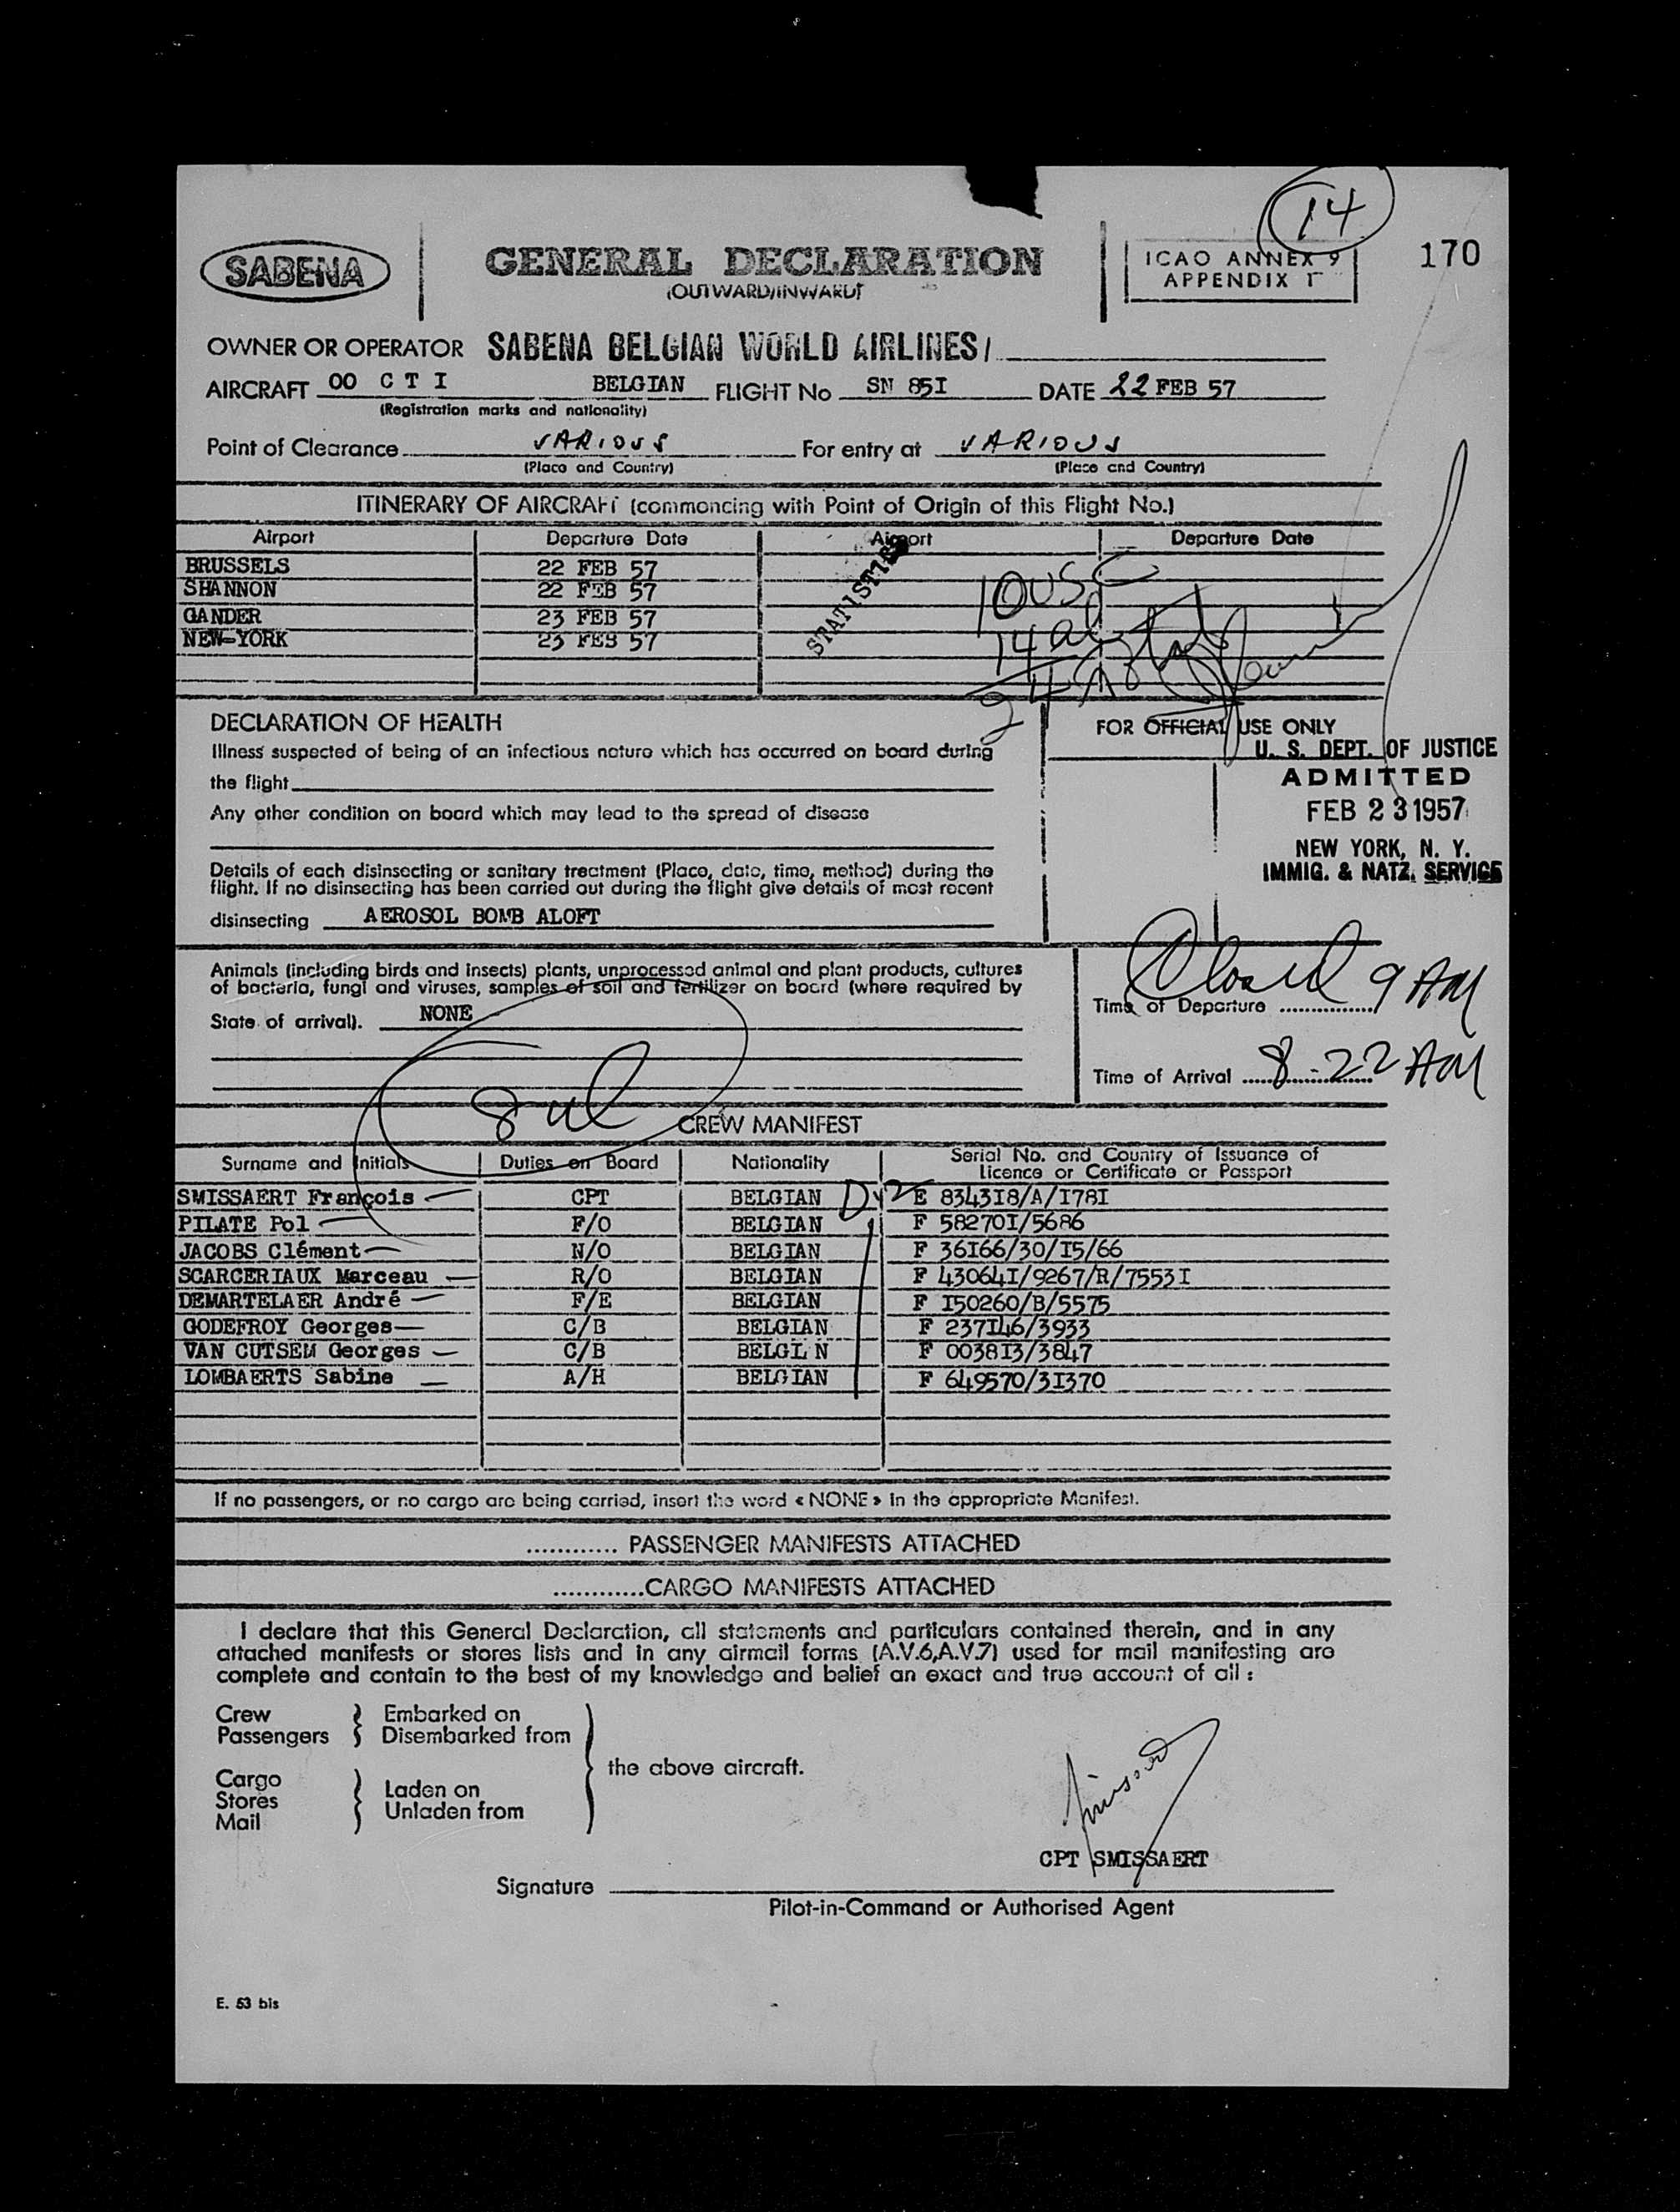 14
SABENA
GENERAL DECLARATION
(OUTWARD/INWARD)
ICAO ANNEX 9
APPENDIX 1
170
OWNER OR OPERATOR SABENA BELGIAN WORLD AIRLINES/
AIRCRAFT OO C T I BELGIAN FLIGHT No SN 85I DATE 22 FEB 57
(Registration marks and nationality)
Point of Clearance VARIOUS For entry at VARIOUS
(Place and Country) (Place and Country)
ITINERARY OF AIRCRAFT (commencing with Point of Origin of this Flight No.)
Airport Departure Date Airport Departure Date
BRUSSELS 22 FEB 57
SHANNON 22 FEB 57
GANDER 23 FEB 57
NEW-YORK 23 FEB 57
STATISTICS
10 USC
14 al
24
DECLARATION OF HEALTH
Illness suspected of being of an infectious nature which has occurred on board during
the flight
Any other condition on board which may lead to the spread of disease
Details of each disinsecting or sanitary treatment (Place, date, time, method) during the
flight. If no disinsecting has been carried out during the flight give details of most recent
disinsecting AEROSOL BOMB ALOFT
FOR OFFICIAL USE ONLY
U. S. DEPT. OF JUSTICE
ADMITTED
FEB 23 1957
NEW YORK, N. Y.
IMMIG. & NATZ. SERVICE
Animals (including birds and insects) plants, unprocessed animal and plant products, cultures
of bacteria, fungi and viruses, samples of soil and fertilizer on board (where required by
State of arrival). NONE
Closed 9 AM
Time of Departure
Time of Arrival 8-22 AM
CREW MANIFEST
Surname and Initials Duties on Board Nationality Serial No. and Country of Issuance of
Licence or Certificate or Passport
SMISSAERT François CPT BELGIAN E 8343I8/A/I78I
PILATE Pol F/O BELGIAN F 58270I/5686
JACOBS Clément N/O BELGIAN F 36I66/30/I5/66
SCARCERIAUX Marceau R/O BELGIAN F 43064I/9267/R/7553I
DEMARTELAER André F/E BELGIAN F I50260/B/5575
GODEFROY Georges C/B BELGIAN F 237I46/3933
VAN CUTSEM Georges C/B BELGI N F 0038I3/3847
LOMBAERTS Sabine A/H BELGIAN F 649570/3I370
If no passengers, or no cargo are being carried, insert the word « NONE » in the appropriate Manifest.
............ PASSENGER MANIFESTS ATTACHED
............CARGO MANIFESTS ATTACHED
I declare that this General Declaration, all statements and particulars contained therein, and in any
attached manifests or stores lists and in any airmail forms (A.V.6,A.V.7) used for mail manifesting are
complete and contain to the best of my knowledge and belief an exact and true account of all :
Crew Embarked on
Passengers Disembarked from
the above aircraft.
Cargo Laden on
Stores Unladen from
Mail
CPT SMISSAERT
Signature
Pilot-in-Command or Authorised Agent
E. 53 bis